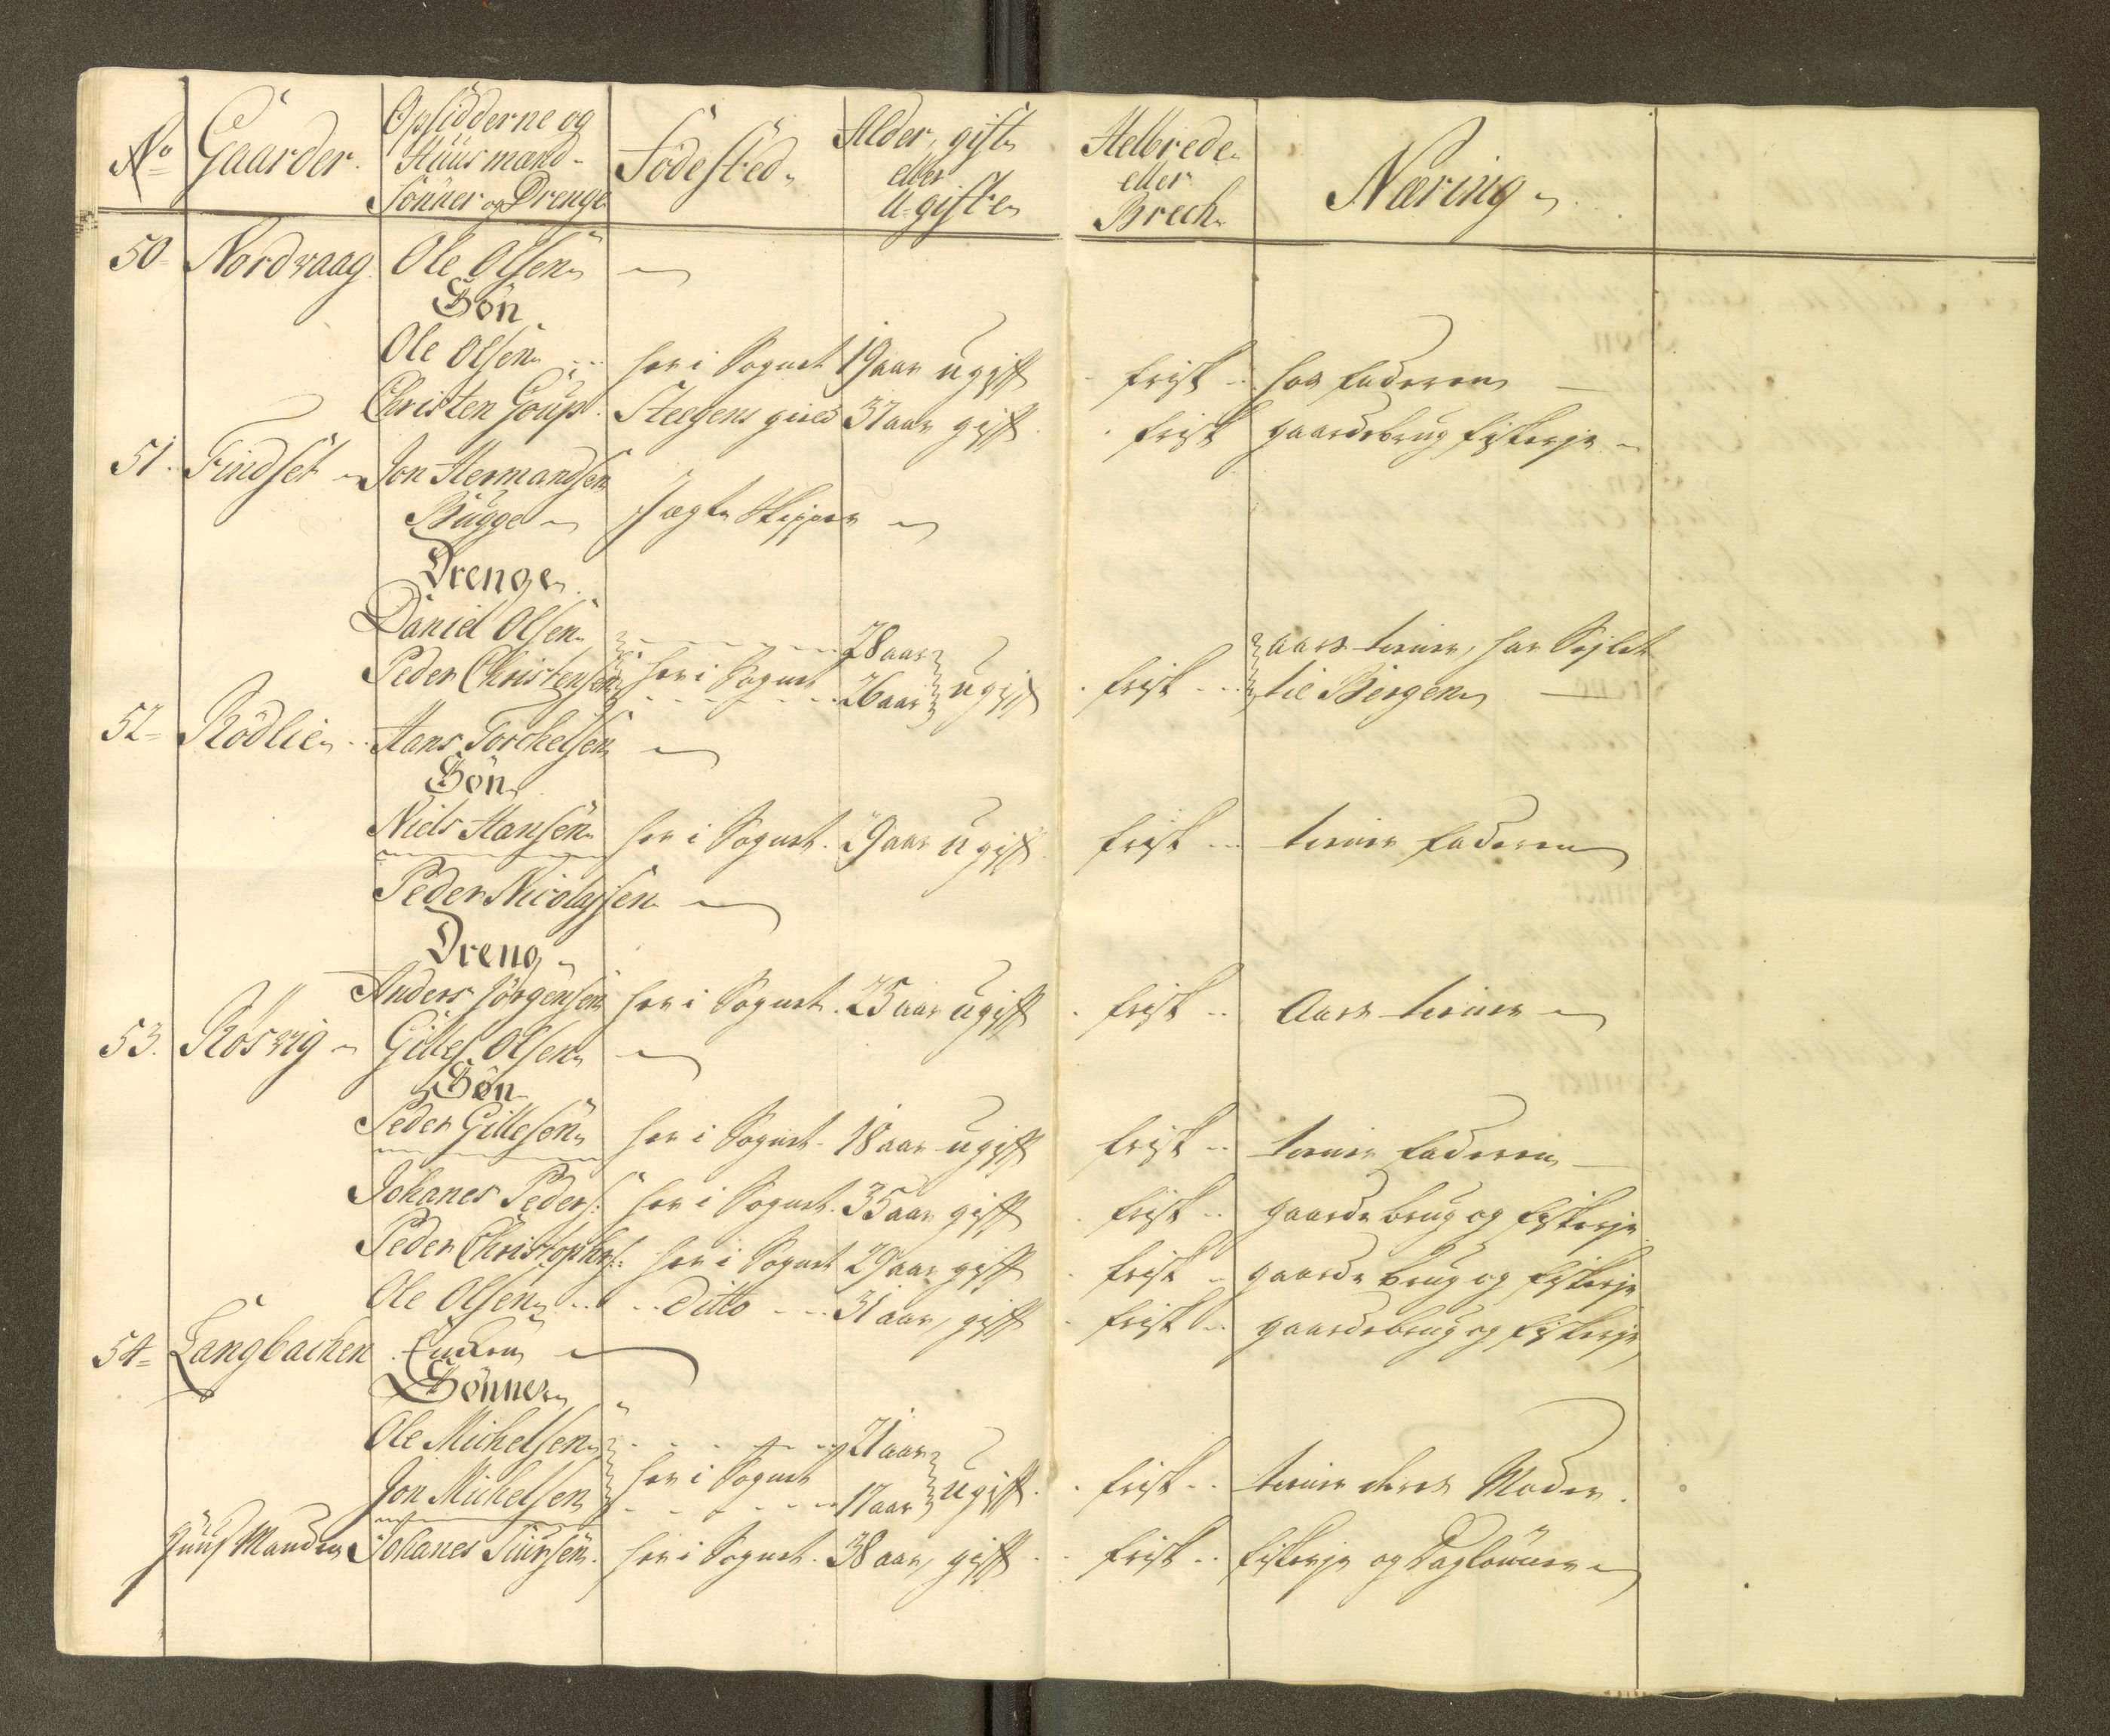 No Gaarder. Opsidderne og Huusmænd Sønner og Drenge Fødested Alder, gift eller Ugifte Helbrede eller Brech Næring
50 Nordvaag. Ole Olsen
Søn
Ole Olsen her i Sognet 19 aar ugift frisk hos Faderen
Christen Steegens gield 37 aar gift frisk gaardebrug fiskerje
51. Findset Jon Hermandsen
Bugge Jægte Skipper
Drenge
Daniel Olsen 28 aar aars tiener, har Sejlet
Peder Christensen her i Sognet 26 aar ugift frisk til Bergen
52 Rødlie Hans Torchelsen
Søn
Niels Hansen her i Sognet. 29 aar ugift frisk tiener Faderen
Peder Nicolaysen
Dreng
Anders Jørgensen her i Sognet. 25 aar ugift frisk Aars tiener
53. Røsvig Gilles Olsen
Søn
Peder Gillesen her i Sognet 18 aar ugift frisk tiener Faderen
Johanes Peders: her i Sognet. 35 aar gift frisk gaarde brug og fiskerje
Peder Christophers: her i Sognet 29 aar gift frisk gaarde brug og fiskerje
Ole Olsen Ditto 31 aar, gift frisk gaardebrug og fiskerje
54 Langbachen Enken
Sønner
Ole Michelsen 21 aar
Jon Michelsen her i Sognet 17 aar ugift. frisk tiener deres Moder.
Huus Manden Johanes Siursen. her i Sognet. 38 aar, gift frisk fiskerje og Daglønner